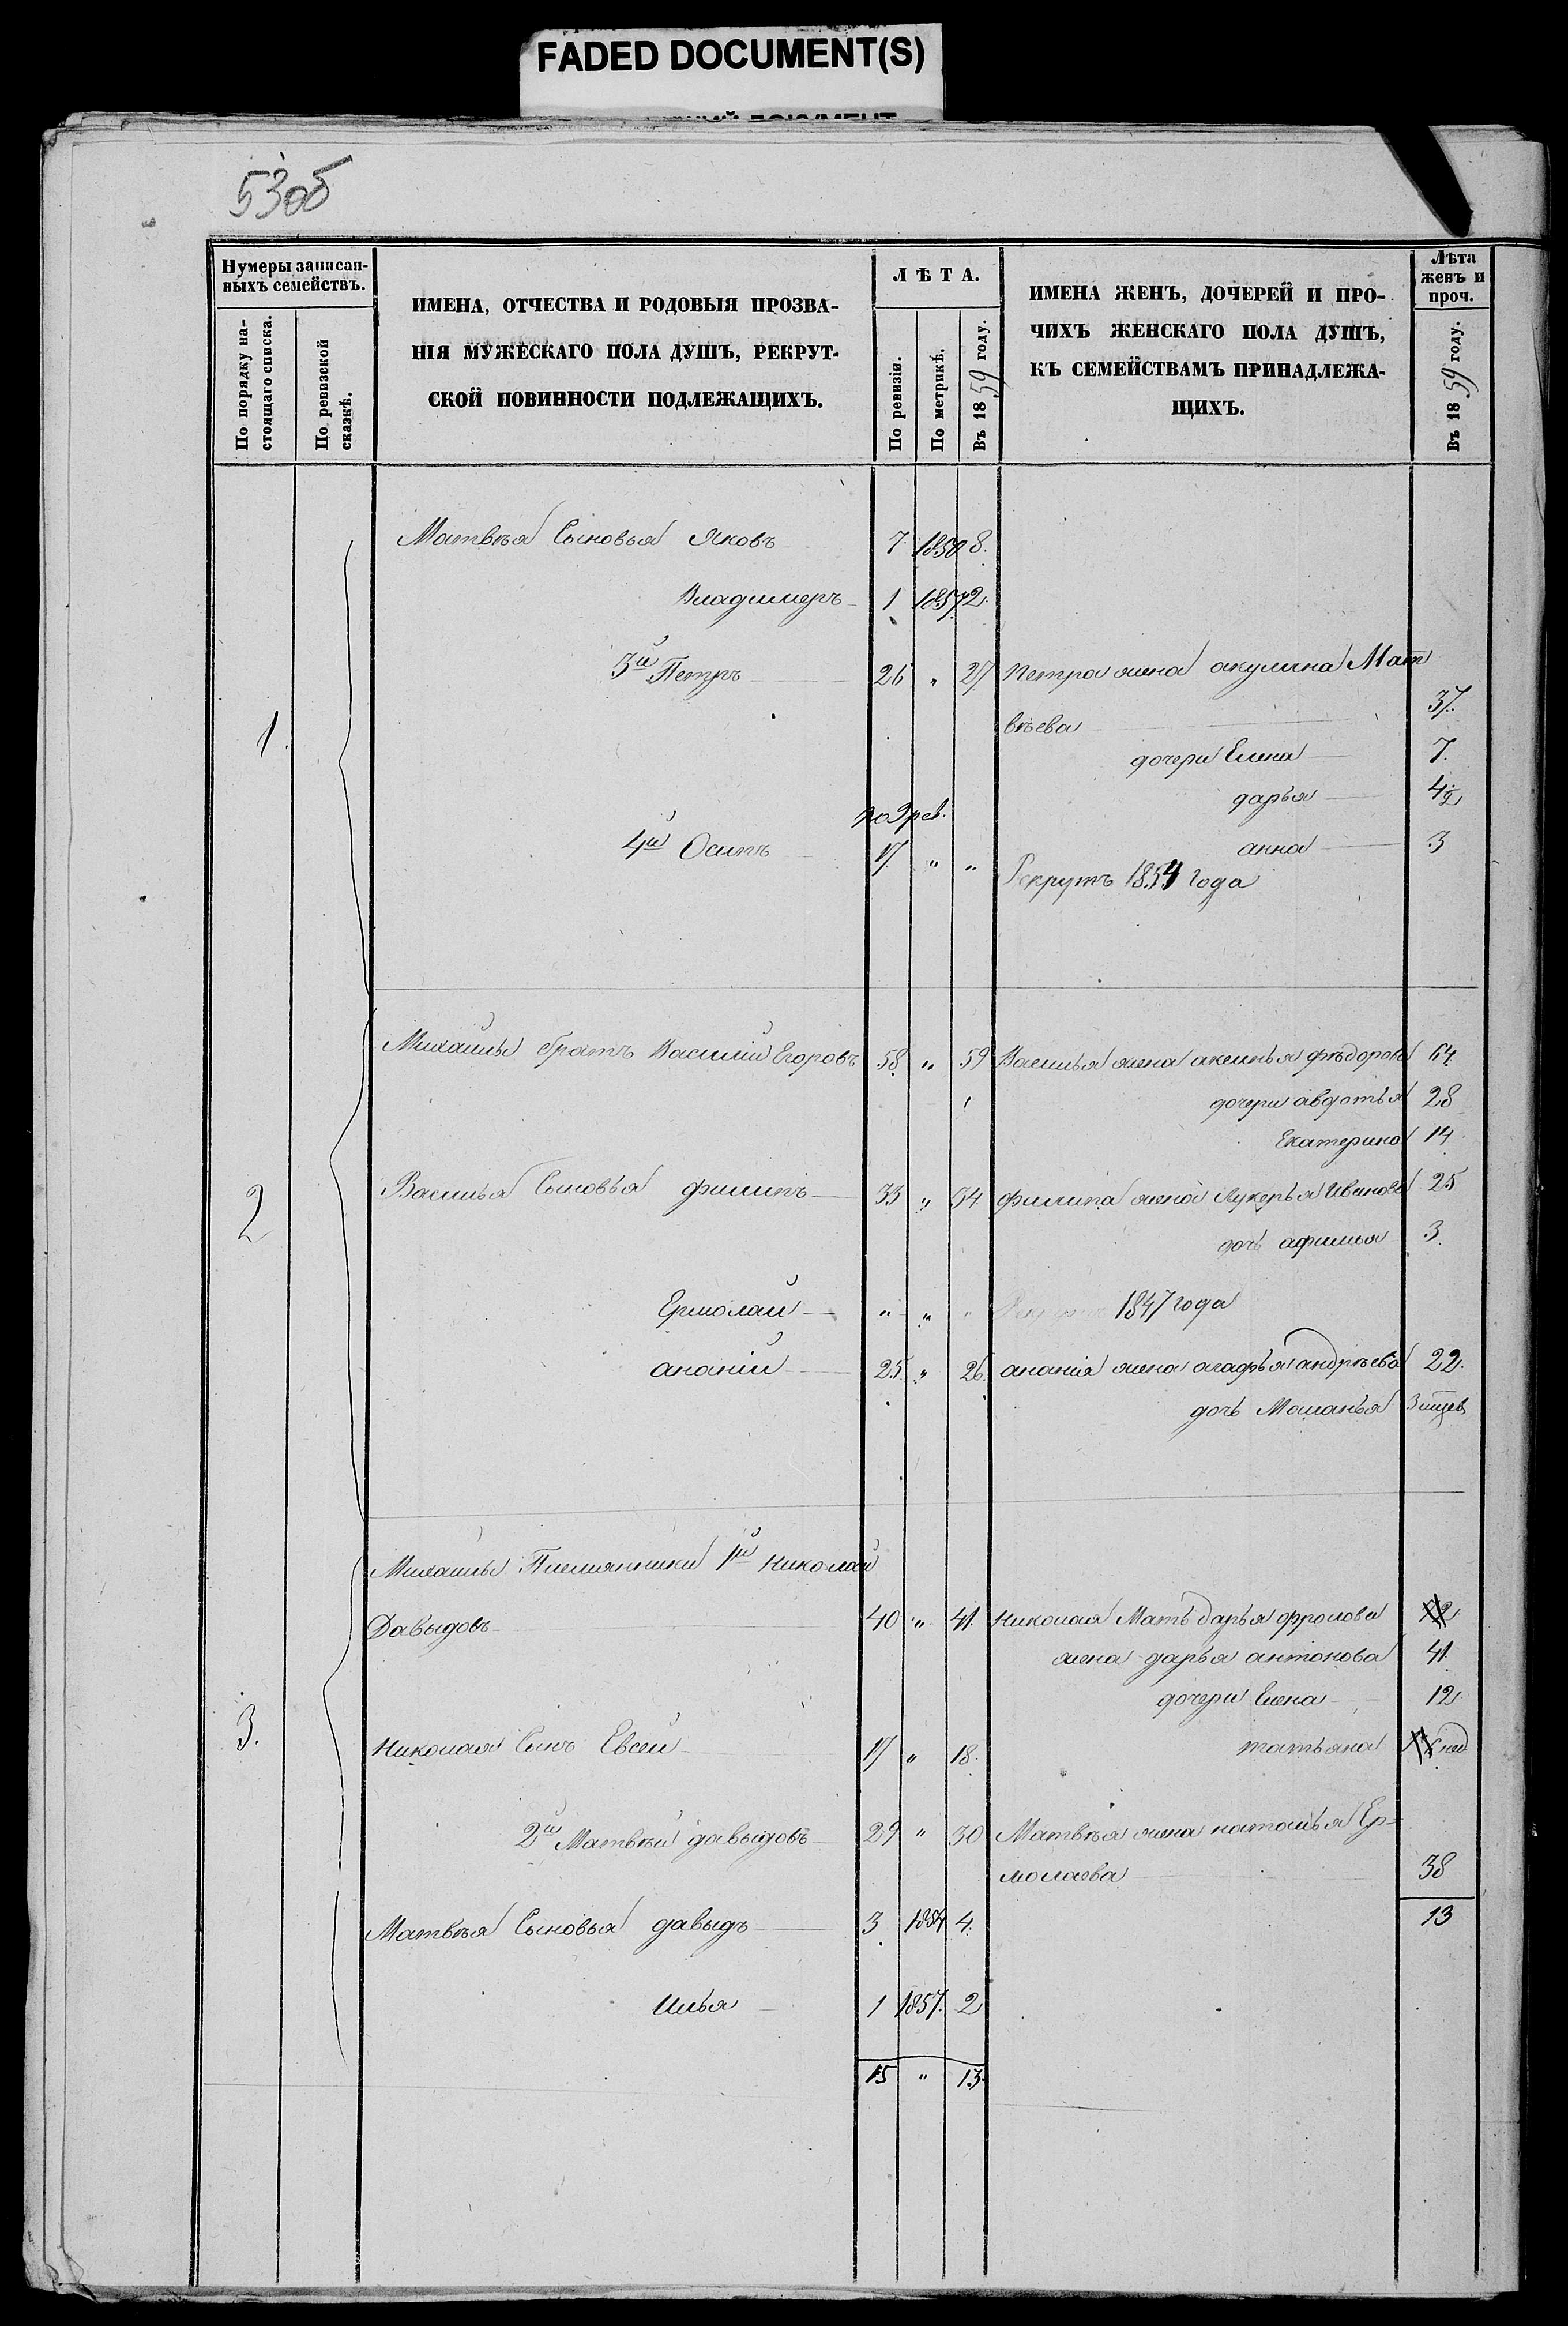 FADED DOCUMENT(S)
53об
Нумеры записан-
ныхъ семействъ.
По порядку на-
стоящаго списка.
По ревизской
сказкѣ.
ИМЕНА, ОТЧЕСТВА И РОДОВЫЯ ПРОЗВА-
НІЯ МУЖЕСКАГО ПОЛА ДУШЪ, РЕКРУТ-
СКОЙ ПОВИННОСТИ ПОДЛЕЖАЩИХЪ.
ЛѢТА.
По ревизіи.
По метрикѣ.
Въ 1859 году.
ИМЕНА ЖЕНЪ, ДОЧЕРЕЙ И ПРО-
ЧИХЪ ЖЕНСКАГО ПОЛА ДУШЪ,
КЪ СЕМЕЙСТВАМЪ ПРИНАДЛЕЖА-
ЩИХЪ.
Лѣта
женъ и
проч.
Въ 1859 году.
Матвѣя Сыновья Яковъ 7 1850 8.
Владимеръ 1 1857 2.
3й Петръ 26 " 27 Петра жена акулина Мат
1. вѣева 37.
дочери Елена 7.
дарья 4½
по 9 рев.
4й Осипъ 17 " " анна 3
Рекрутъ 1854 года
Михайлы братъ Василий Егоровъ 58 " 59 Василья жена аксинья фѣдорова 64
дочери авдотья 28
Екатерина 14
2 Василья Сыновья филипъ 33 " 34 филипа жена Лукерья Иванова 25
дочь афимья 3.
Ермолай " " " 1847 года
ананiй 25 " 26 анания жена агафья андрѣева 22.
дочь Маланья 3
Михайлы Племянники 1й Николай
Давыдовъ 40 " 41. Николая Мать дарья фролова
жена дарья антонова 41
дочери Елена 12
3. Николая Сынъ Евсей 17 " 18. татьяна
2й Матвѣй давыдовъ 29 " 30 Матвѣя жена наталья Ер-
молаева 38
Матвѣя Сыновья давыдъ 3 1854 4. 13
Илья 1 1857. 2
15 " 13.